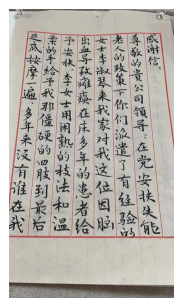 感谢信。
尊敬的贵公司领导：在党安扶失能
老人的政策下你们派遣了有经验的
女士李淑琴来我家对我这位因脑
出血导致瘫痪在床多年的患者给
予安扶李女士用闲熟的技法和温
柔的手给予我那僵硬的四肢到最后
足底按摩一遍.多年来没有谁在我